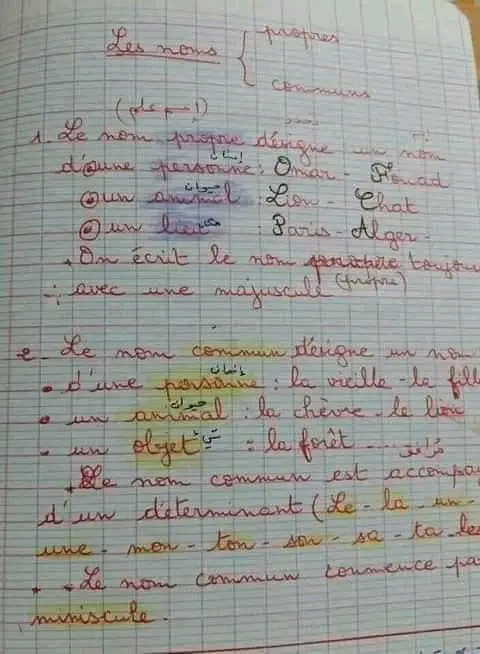 Les noms { propres
communs
(اسم علم)
1. Le nom propre désigne un nom
d'une personne إنسان : Omar - Fouad
un animal حيوان : Lion - Chat
un lieu مكان : Paris - Alger -
On écrit le nom propre toujou
avec une majuscule (propre)
2. Le nom commun désigne un nom
• d'une personne إنسان : la vieille - la fill
• un animal حيوان : la chèvre - le lion
- un objet شيء : la forêt .... مُرافق
Le nom commun est accompa
d'un déterminant (Le - la - un -
une - mon - ton - son - sa - ta - les
Le nom commun commence pa
miniscule.